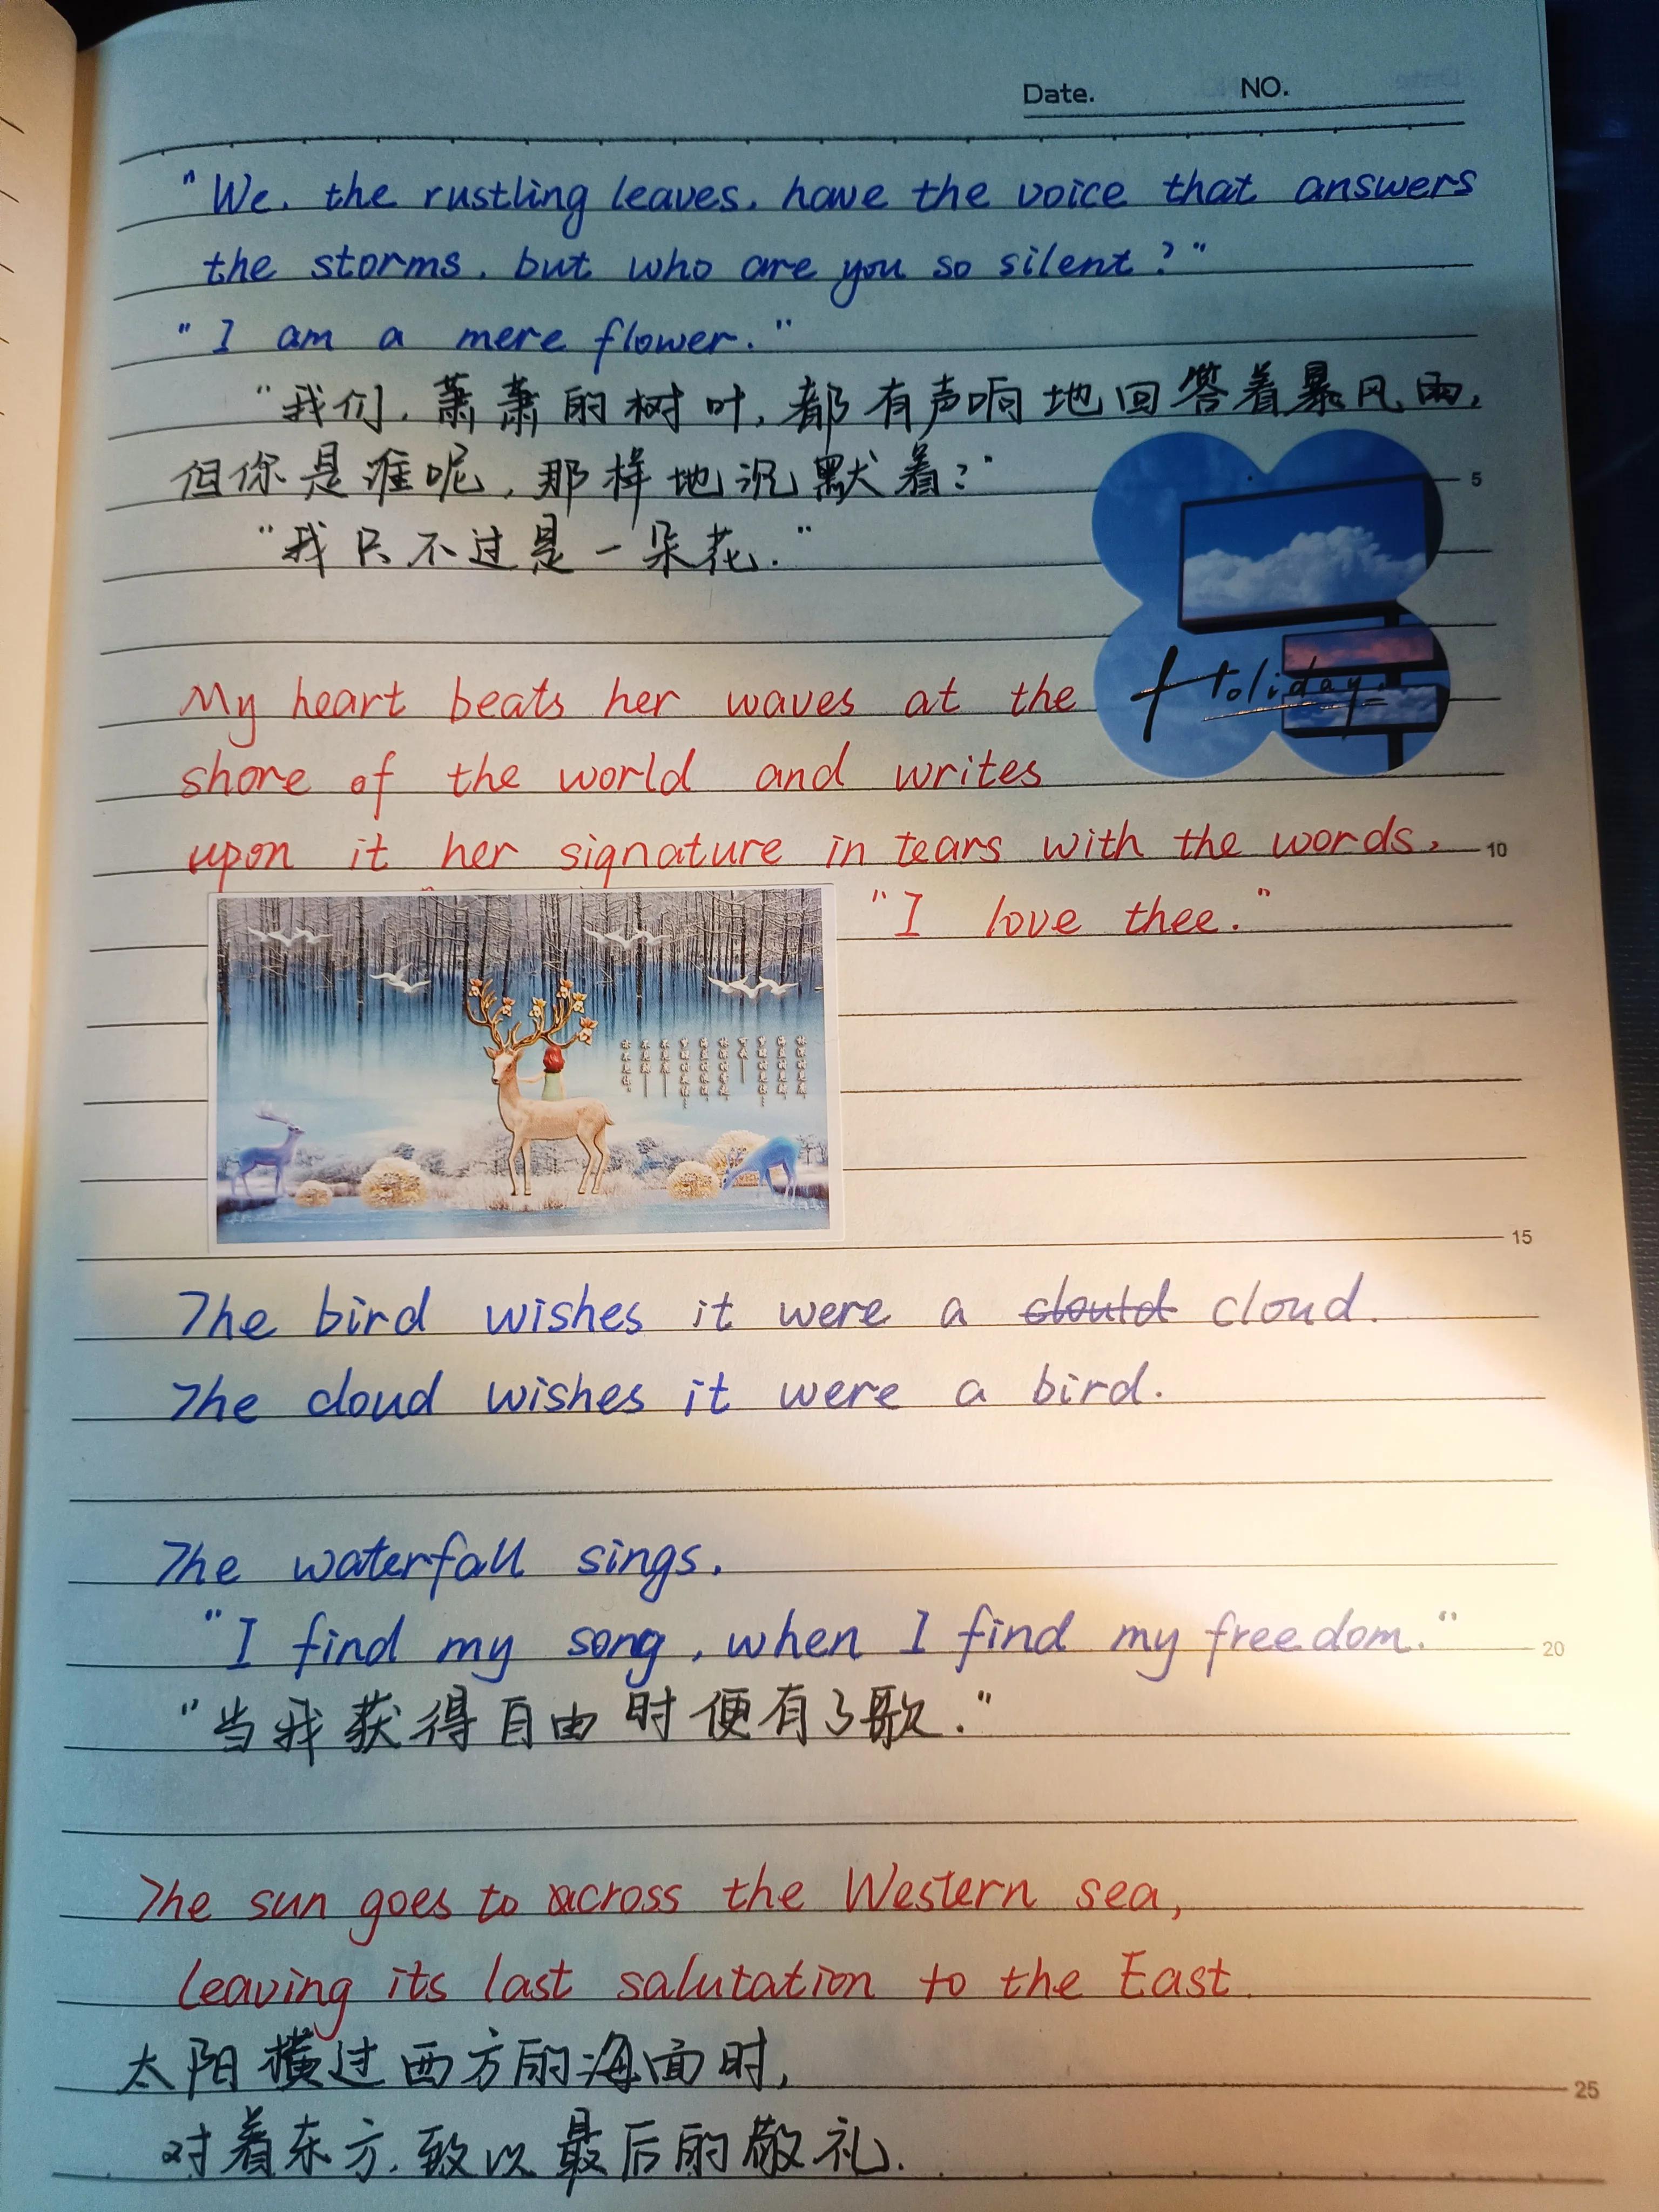 Date. NO.
"We, the rustling leaves, have the voice that answers
the storms, but who are you so silent?"
"I am a mere flower."
"我们,萧萧的树叶,都有声响地回答着暴风雨,
但你是谁呢,那样地沉默着?"
5
"我只不过是一朵花."
Holiday
My heart beats her waves at the
shore of the world and writes
upon it her signature in tears with the words,
10
"I love thee."
15
The bird wishes it were a clould cloud.
The cloud wishes it were a bird.
The waterfall sings,
"I find my song, when I find my freedom."
20
"当我获得自由时便有了歌."
The sun goes to across the Western sea,
leaving its last salutation to the East.
太阳横过西方的海面时,
25
对着东方,致以最后的敬礼.